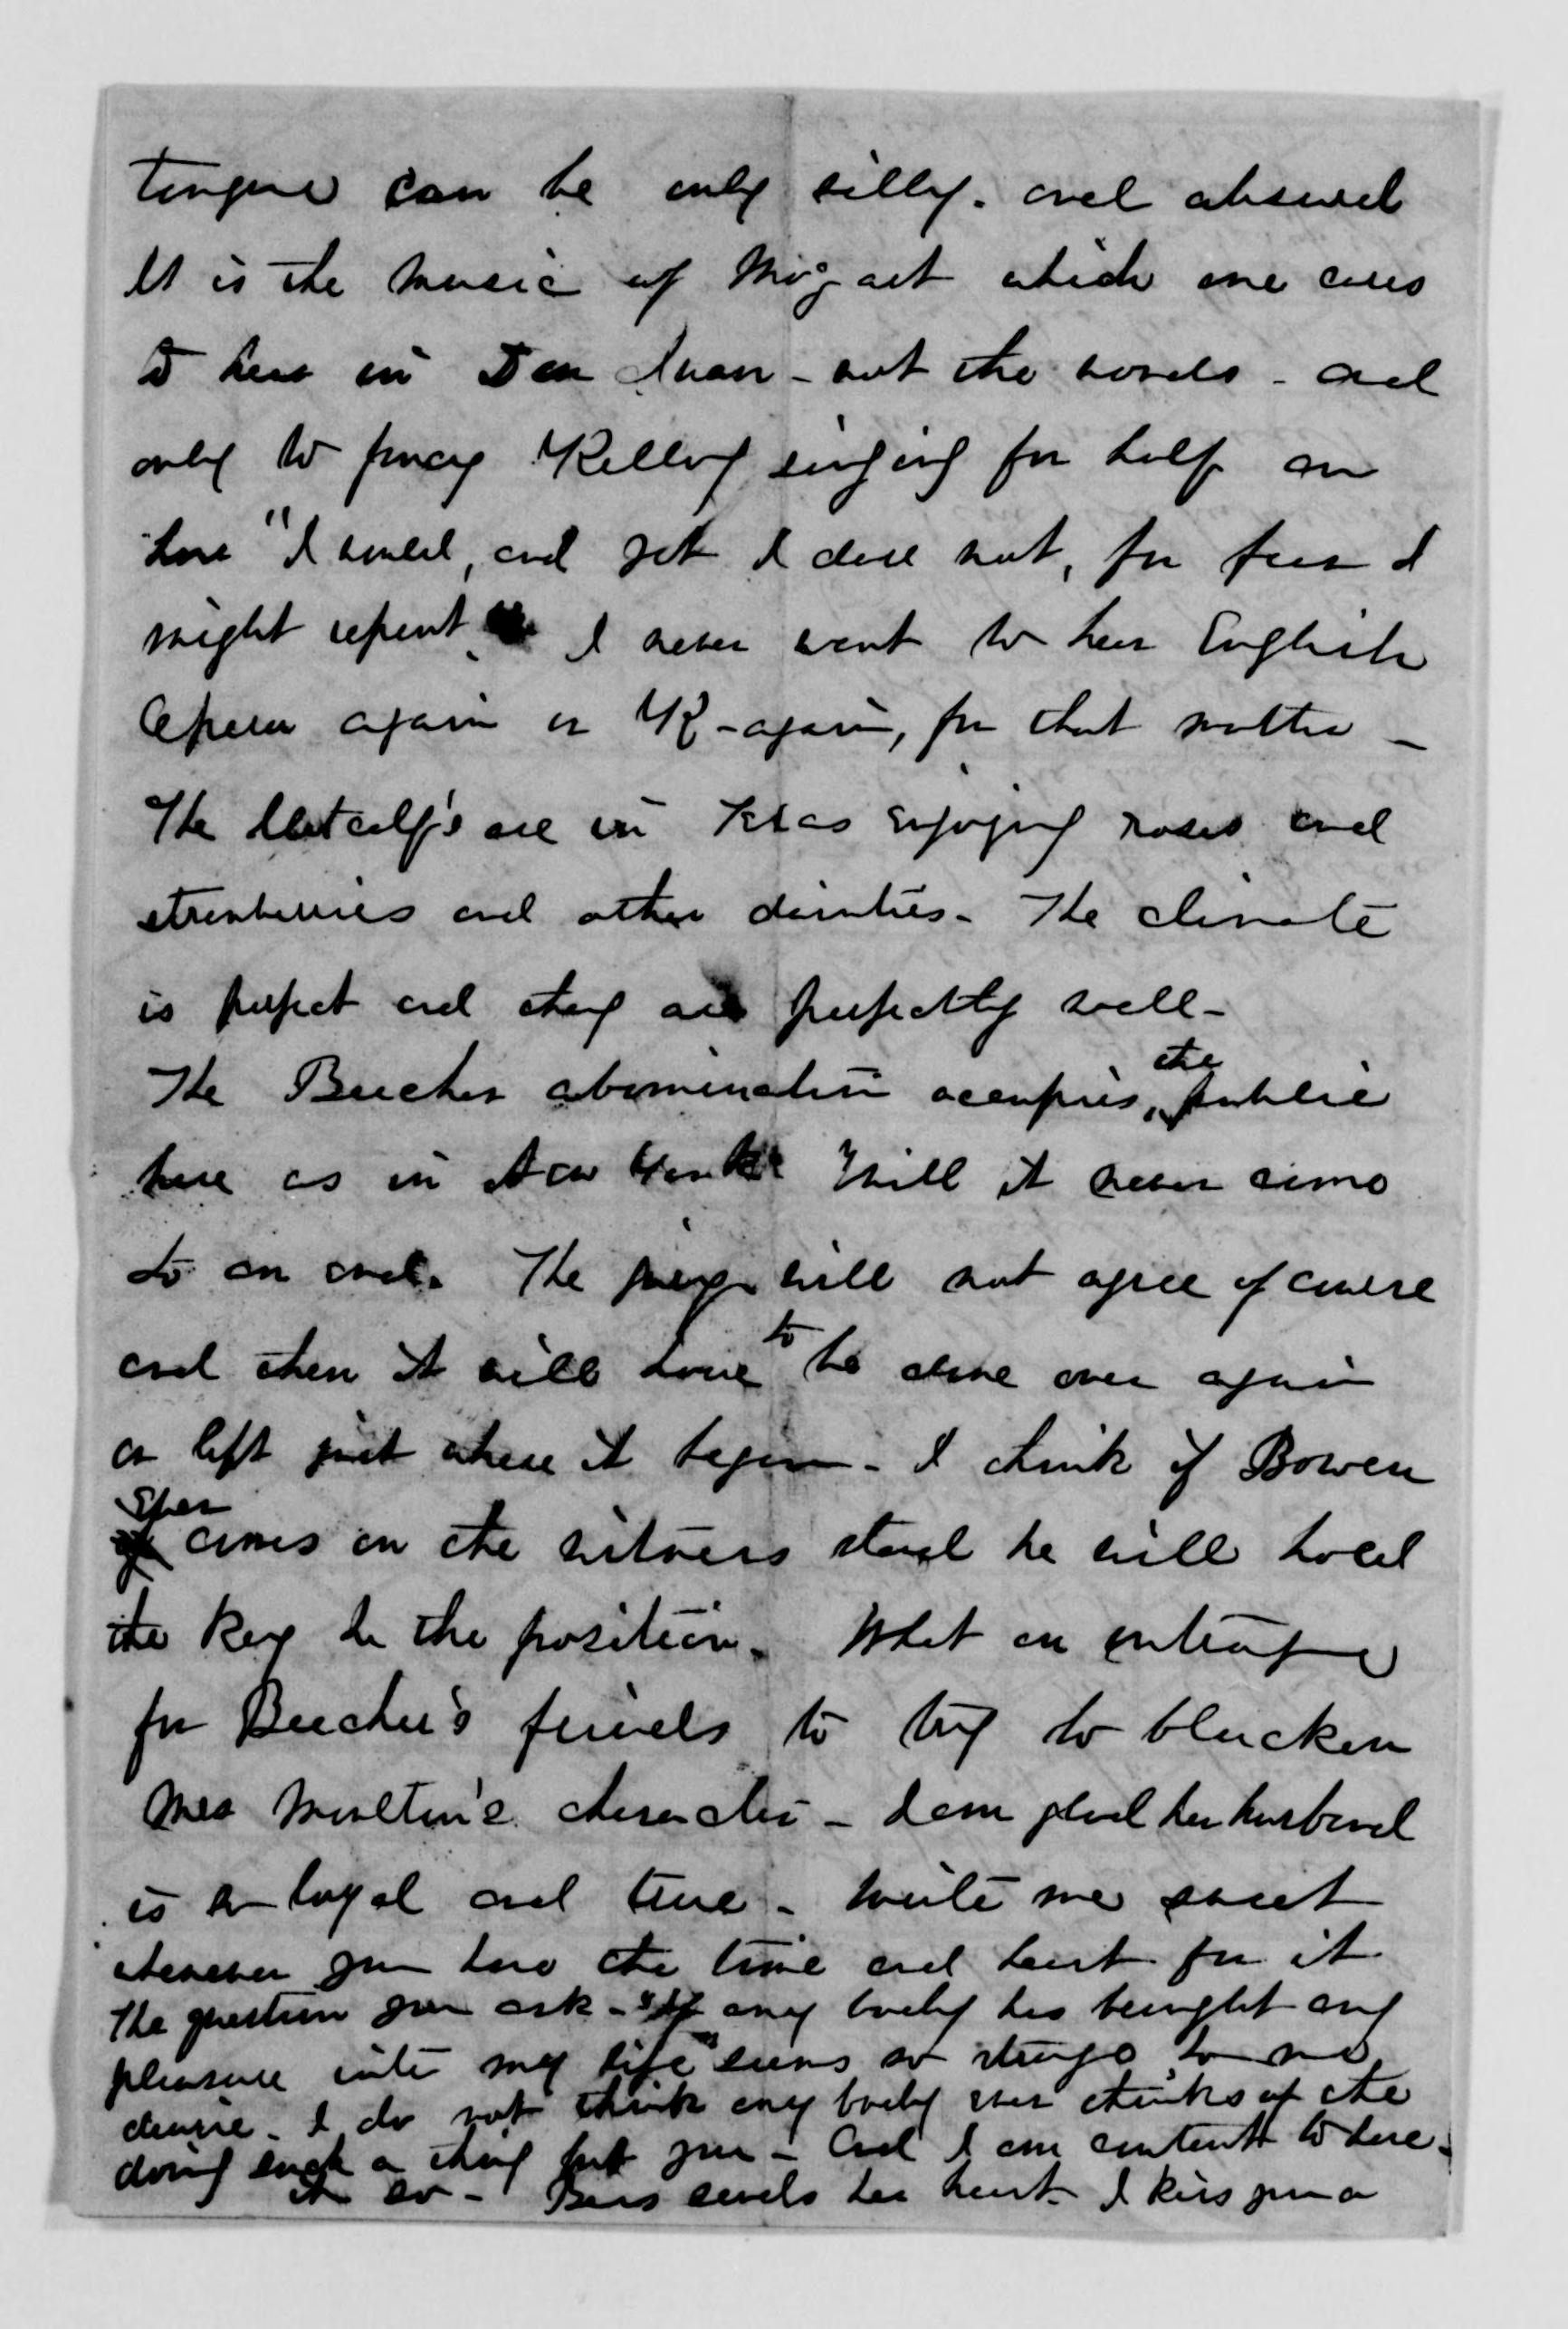 tongue can be only silly. and absurd
It is the music of Mozart which one cares
to hear in Don Juan - not the words - and
only to fancy Kellogg singing for half an
hour "I would, and yet I dare not, for fear I
might repent. I never want to hear English
Opera again or K - again, for that matter -
The Metcalf's are in Texas enjoying roses and
strawberries and other dainties - The climate
is perfect and they are perfectly well -
The Beecher abomination occupies the public
here as in New York. Will it never come
to an end. The jury will not agree of course
and then it will have to be done over again
or left just where it began - I think if Bowen
ever comes on the witness stand he will hold
the key to the position. What an outrage
for Beecher's friends to try to blacken
Mrs Moulton's character - I am glad her husband
is so loyal and true - Write me sweet
whenever you have the time and heart for it
The question you ask - "If any body has brought any
pleasure into my life" seems so strange to me
dearie - I do not think any body ever thinks of the
doing such a thing but you - And I am content to have
it so - Bess sends her heart - I kiss you a